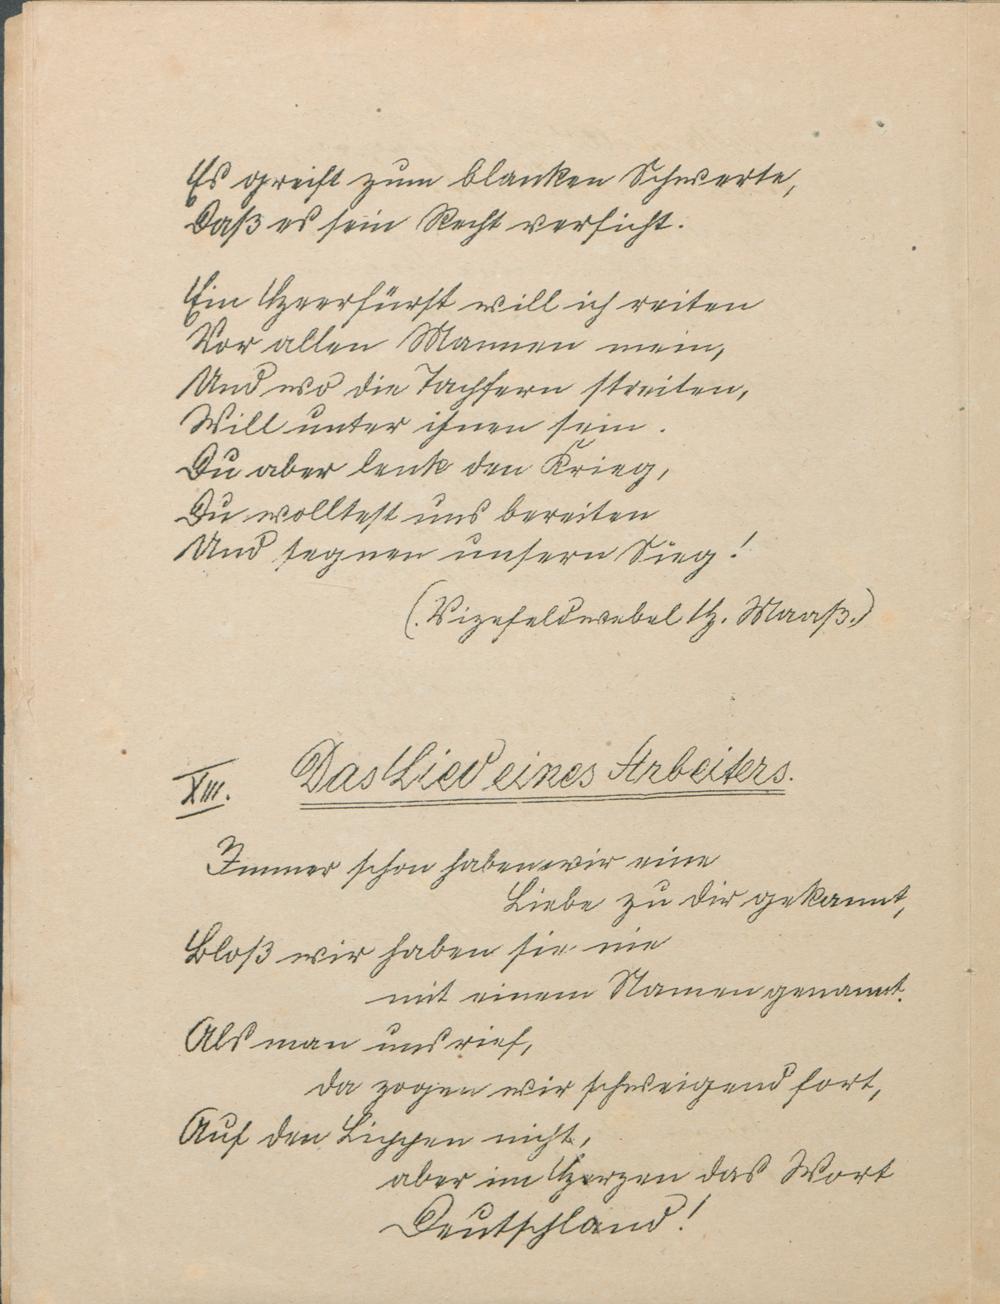 Es greift zum blanken Schwerte,
Daß es sein Recht verficht.
Ein Heerfürst will ich reiten
Vor allen Mannen mein,
Und wo die Tachfern streiten,
Will unter ihnen sein.
Du aber lenk den Krieg,
Du wolltest uns bereiten
Und segnen unsern Sieg!
(Vizefeldwebel H. Maaß.)
XIII. Das Lied eines Arbeiters.
Immer schon haben wir eine
Liebe zu dir gekannt,
Bloß wir haben sie nie
mit einem Namen genannt.
Als man uns rief,
da zogen wir schweigend fort,
Auf den Lippen nicht,
aber im Herzen das Wort
Deutschland!